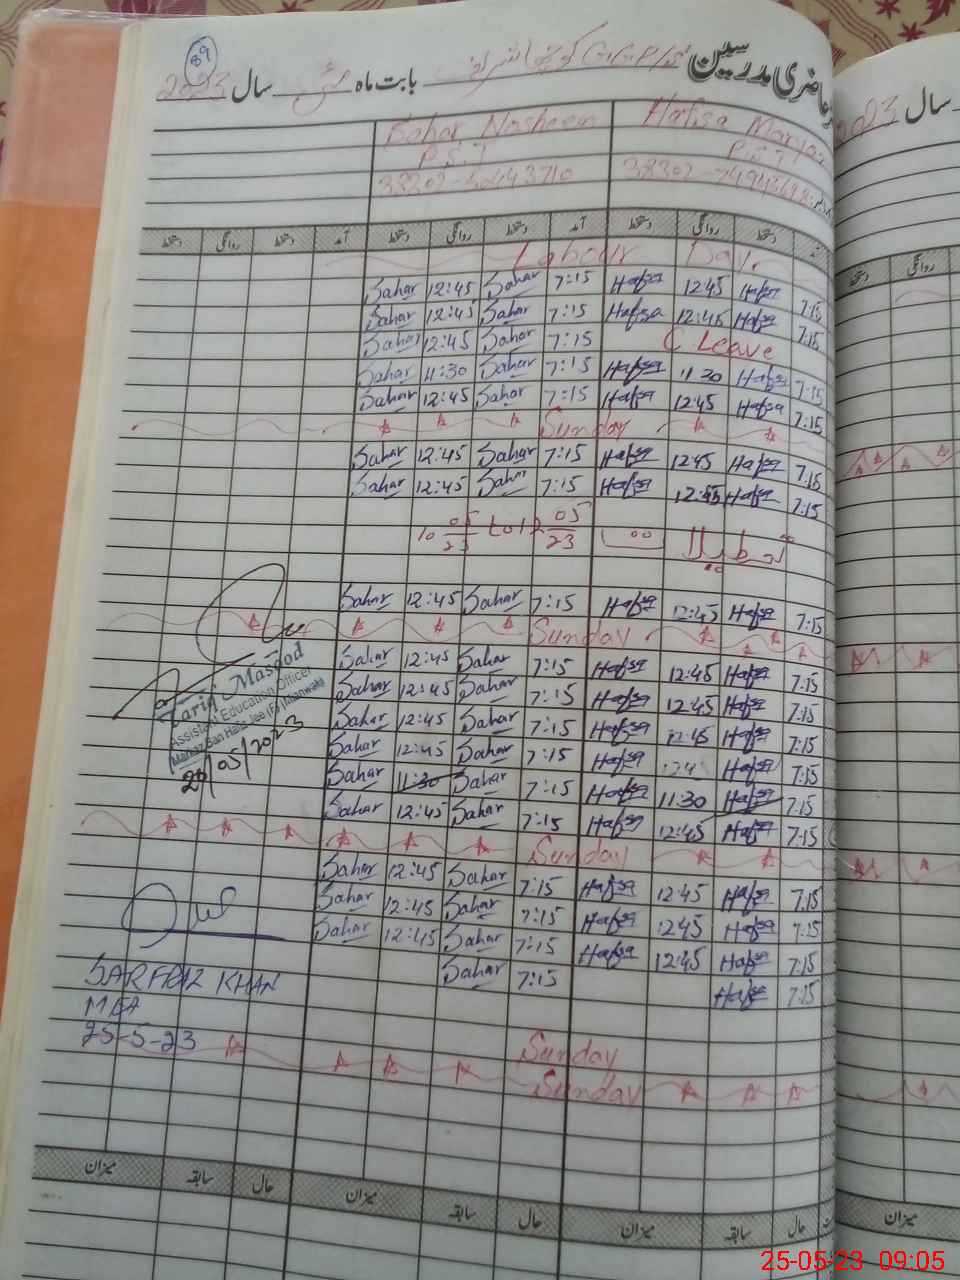 89
حاضری مدرسین GGPS بابت ماہ مئی سال 2023
سال 2023
Sahar Nasheen Hafsa Maryam
P.S.T P.S.T
دستخط روانگی دستخط آمد دستخط روانگی دستخط آمد دستخط روانگی دستخط
Labour Day.
Sahar 12:45 Sahar 7:15 Hafsa 12:45 Hafsa 7:15
Sahar 12:45 Sahar 7:15 Hafsa 12:45 Hafsa 7:15
Sahar 12:45 Sahar 7:15 C Leave
Sahar 11:30 Sahar 7:15 Hafsa 11:30 Hafsa 7:15
Sahar 12:45 Sahar 7:15 Hafsa 12:45 Hafsa 7:15
Sunday
Sahar 12:45 Sahar 7:15 Hafsa 12:45 Hafsa 7:15
Sahar 12:45 Sahar 7:15 Hafsa 12:45 Hafsa 7:15
10 05/23 to 12 05/23 تعطیلات
Sahar 12:45 Sahar 7:15 Hafsa 12:45 Hafsa 7:15
Sunday
Sahar 12:45 Sahar 7:15 Hafsa 12:45 Hafsa 7:15
Sahar 12:45 Sahar 7:15 Hafsa 12:45 Hafsa 7:15
Sahar 12:45 Sahar 7:15 Hafsa 12:45 Hafsa 7:15
Sahar 12:45 Sahar 7:15 Hafsa Hafsa 7:15
Sahar 11:30 Sahar 7:15 Hafsa 11:30 Hafsa 7:15
Sahar 12:45 Sahar 7:15 Hafsa 12:45 Hafsa 7:15
Tariq Masood
Assistant Education Officer
Markaz Ban Hafiz Jee (F) Mianwali
20/05/2023
Sunday
Sahar 12:45 Sahar 7:15 Hafsa 12:45 Hafsa 7:15
Sahar 12:45 Sahar 7:15 Hafsa 12:45 Hafsa 7:15
Sahar 12:45 Sahar 7:15 Hafsa 12:45 Hafsa 7:15
Sahar 7:15 Hafsa 7:15
SARFRAZ KHAN
MEA
25-5-23
Sunday
Sunday
میزان سابقہ حال میزان سابقہ حال میزان سابقہ حال
میزان
25-05-23 09:05